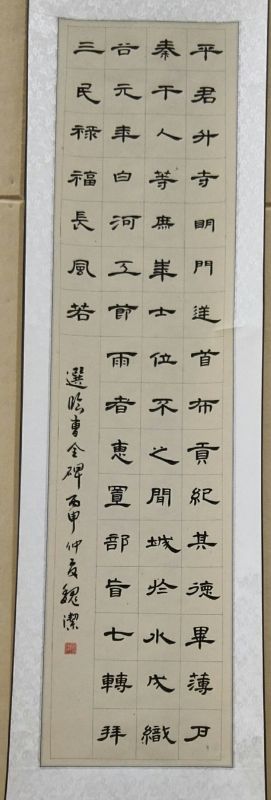 平君升寺明門送首布貢紀其德畢薄
秦干人等無士位不之聞城於水織
谷元年白河工節雨者惠置部旨七轉拜
三民祿福長風若
選臨曹全碑丙申仲夏魏潔